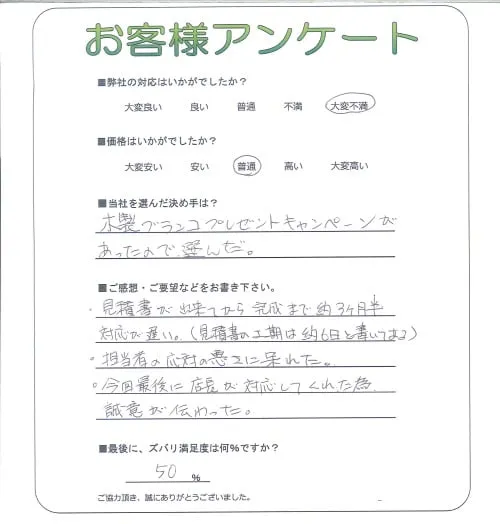 お客様アンケート
■弊社の対応はいかがでしたか？
大変良い 良い 普通 不満 大変不満
■価格はいかがでしたか？
大変安い 安い 普通 高い 大変高い
■当社を選んだ決め手は？
木製ブランコプレゼントキャンペーンが
あったので選んだ。
■ご感想・ご要望などをお書き下さい。
・見積書が出来てから完成まで約3ヶ月半
対応が遅い。(見積書の工期は約6日と書いてある)
・担当者の応対の悪さに呆れた。
・今回最後に店長が対応してくれた為
誠意が伝わった。
■最後に、ズバリ満足度は何%ですか？
50 %
ご協力頂き、誠にありがとうございました。